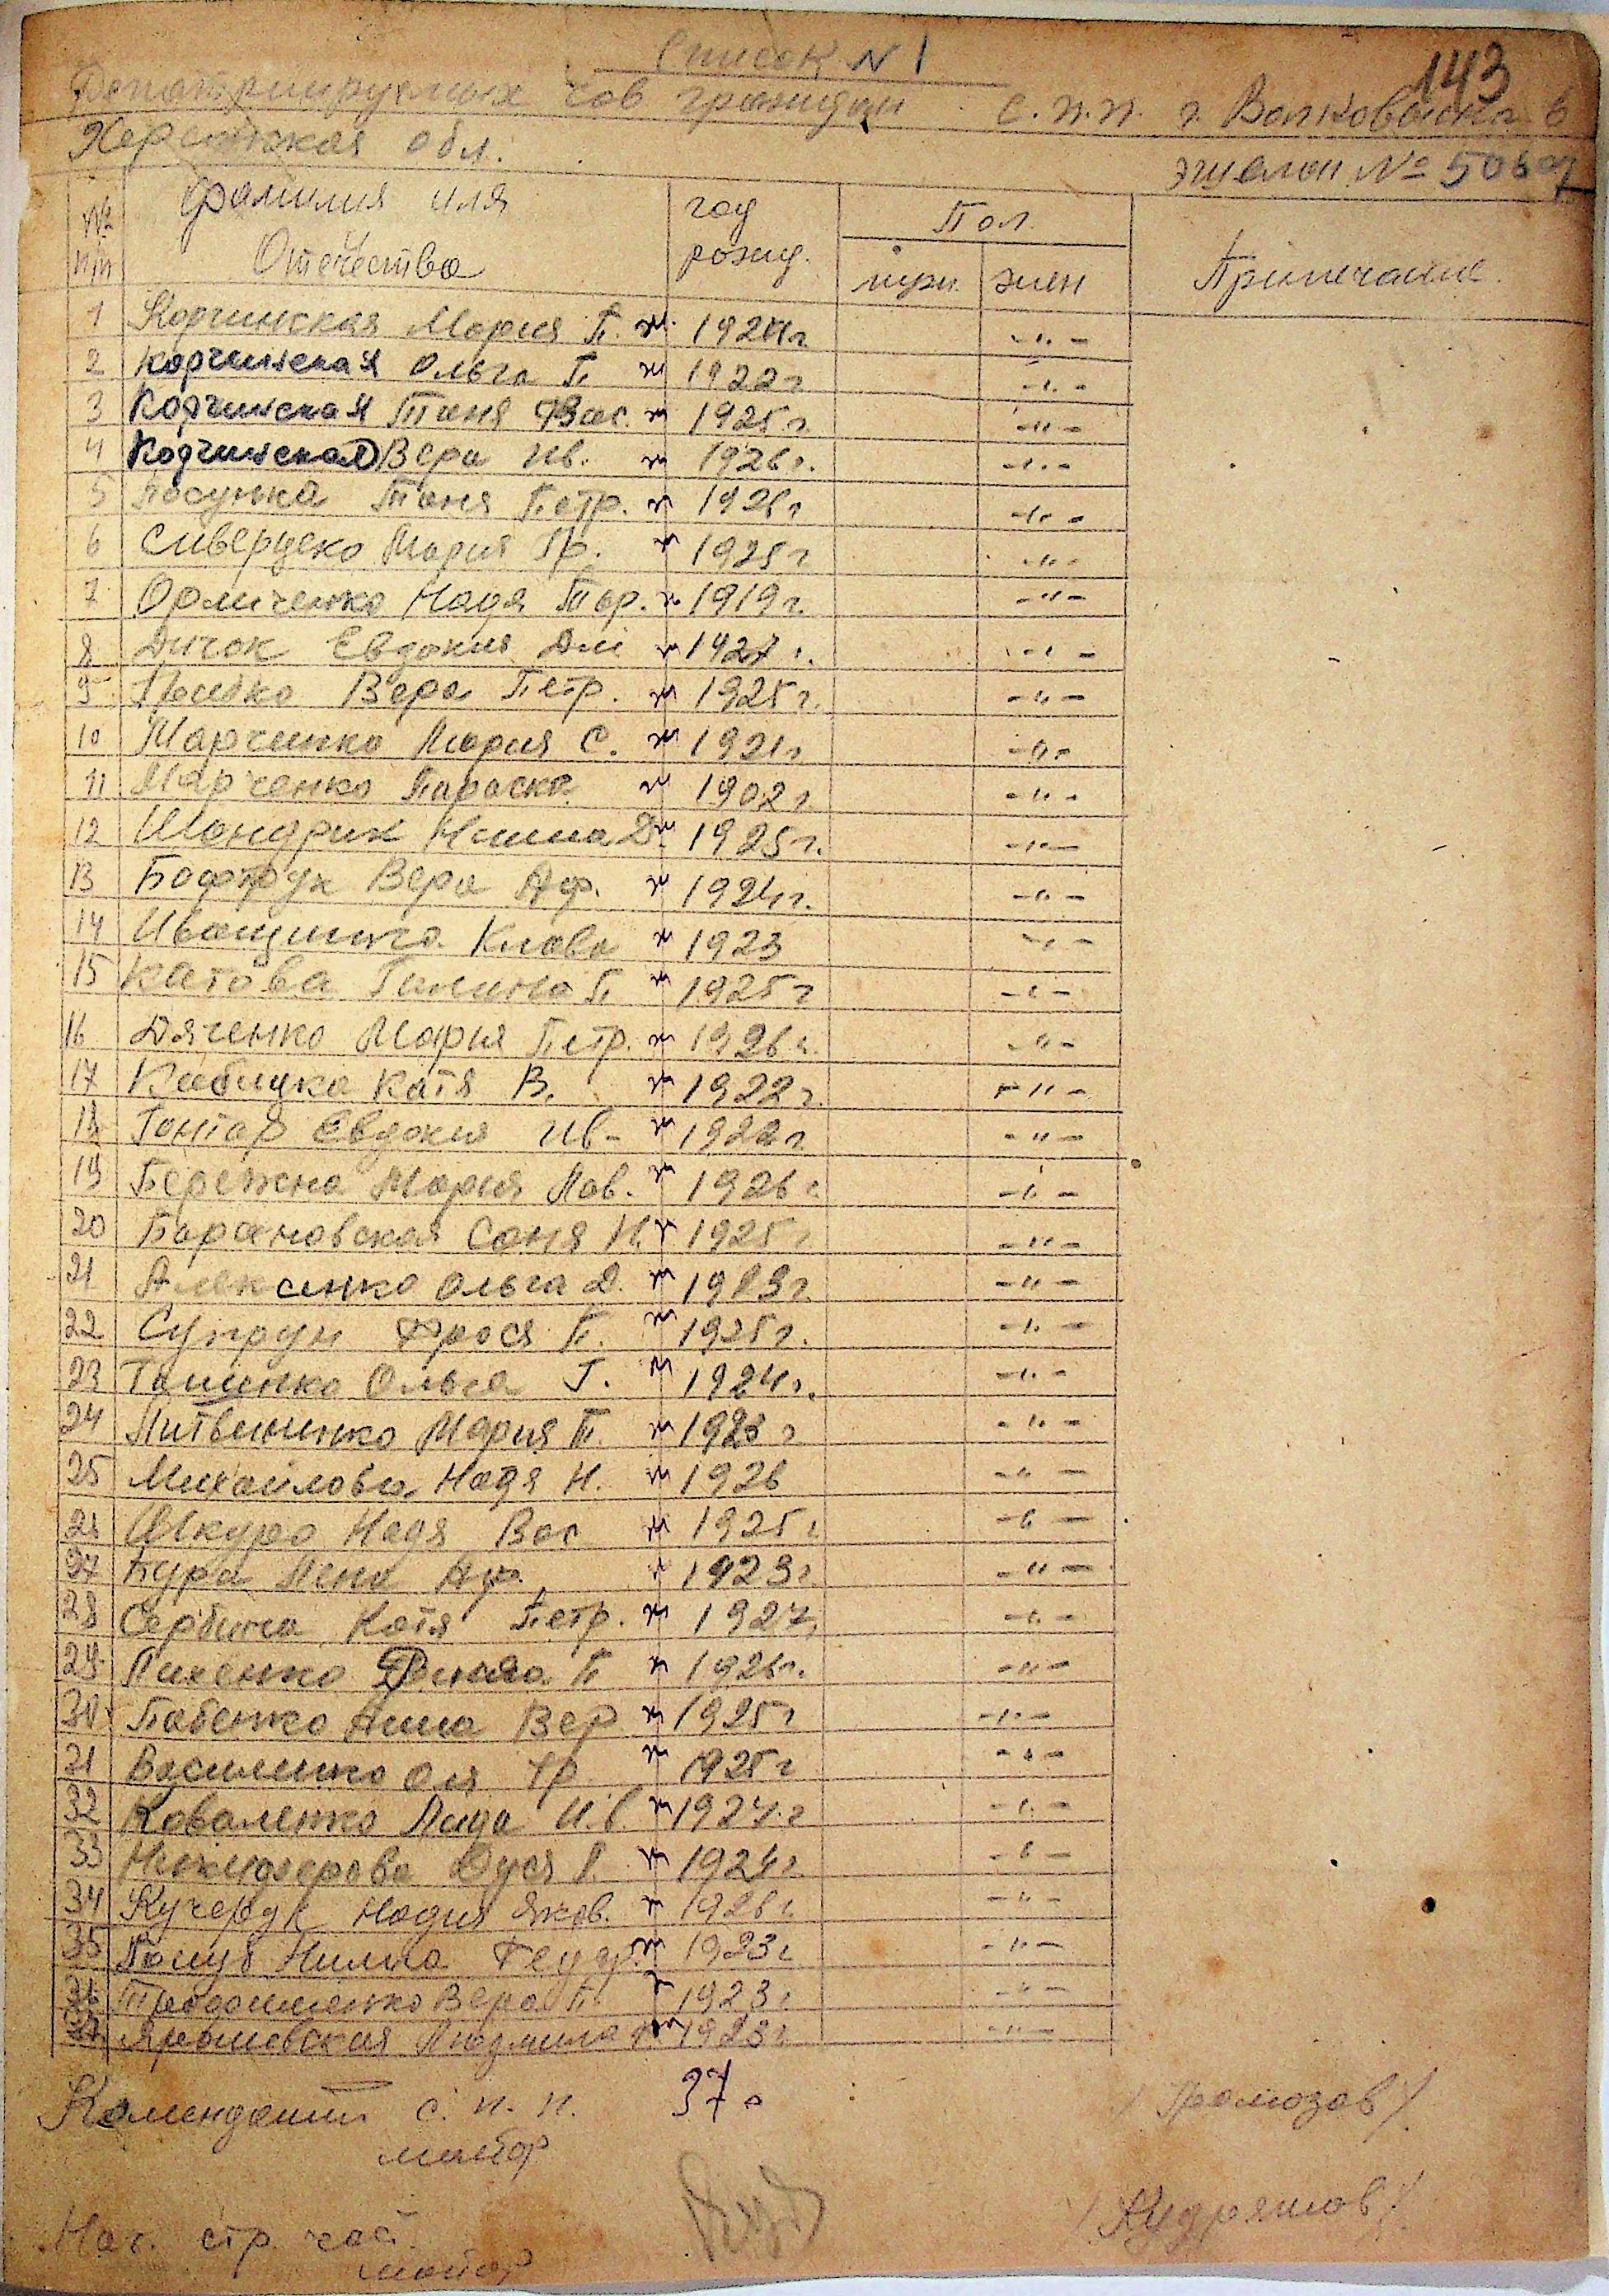 143
Список N 1
Репатриируемых сов граждан С.П.П. г. Волковыска в
Херсонская обл.
эшелон № 50647
№ п/п Фамилия имя Отчество год рожд. Пол муж. жен Примечание.
1 Корчинская Мария П. ж. 1924г -"-
2 Корчинская Ольга П ж 1922г -"-
3 Корчинская Таня Вас. ж 1925г. -"-
4 Корчинская Вера Ив. ж 1926г. -"-
5 Таня Петр. ж 1926г -"-
6 Мария Гр. ж 1925г -"-
7 Надя ж 1919г. -"-
8 Дичок Евдокия Дм ж 1927г. -"-
9 Вера Петр. ж 1925г. -"-
10 Марченко Мария С. ж 1921г -"-
11 Марченко Параска ж 1902г. -"-
12 Шандрик Нина Д. ж 1925г. -"-
13 Вера Аф. ж 1924г. -"-
14 Иващенко Клава ж 1923 -"-
15 Катова Галина П ж 1925г -"-
16 Дяченко Мария Петр. ж 1926г. -"-
17 Катя В. ж 1922г. -"-
18 Гонтар Евдокия Ив- ж 1922г -"-
19 Бережна Мария Пав. ж 1926г -"-
20 Барановская Соня И. ж 1925г -"-
21 Алексенко Ольга Д. ж 1923г. -"-
22 Супрун Фрося П. ж 1925г. -"-
23 Ольга Г. ж 1924г. -"-
24 Литвиненко Мария П. ж 1923г -"-
25 Михайлова Надя Н. ж 1926 -"-
26 Шкура Надя Вас ж 1925г -"-
27 Бура Лена Аф. ж 1923г. -"-
28 Сербина Катя Петр. ж 1927г -"-
29 П ж 1926г. -"-
30 Бабенко Анна ж 1925г -"-
31 Василенко Оля Гр ж 1925г -"-
32 Коваленко Лида Ив. ж 1924г -"-
33 Дуся ж 1924г. -"-
34 Кучерук Надия Яков. ж 1926г. -"-
35 Голуб Нина Федор. ж 1923г -"-
36 Вера П. ж 1923г -"-
37. Ярошевская Людмила ж 1923г -"-
Комендант с.п.п. 37.
майор /Громозов/
Нач. стр. част.
майор /Кудряшов/